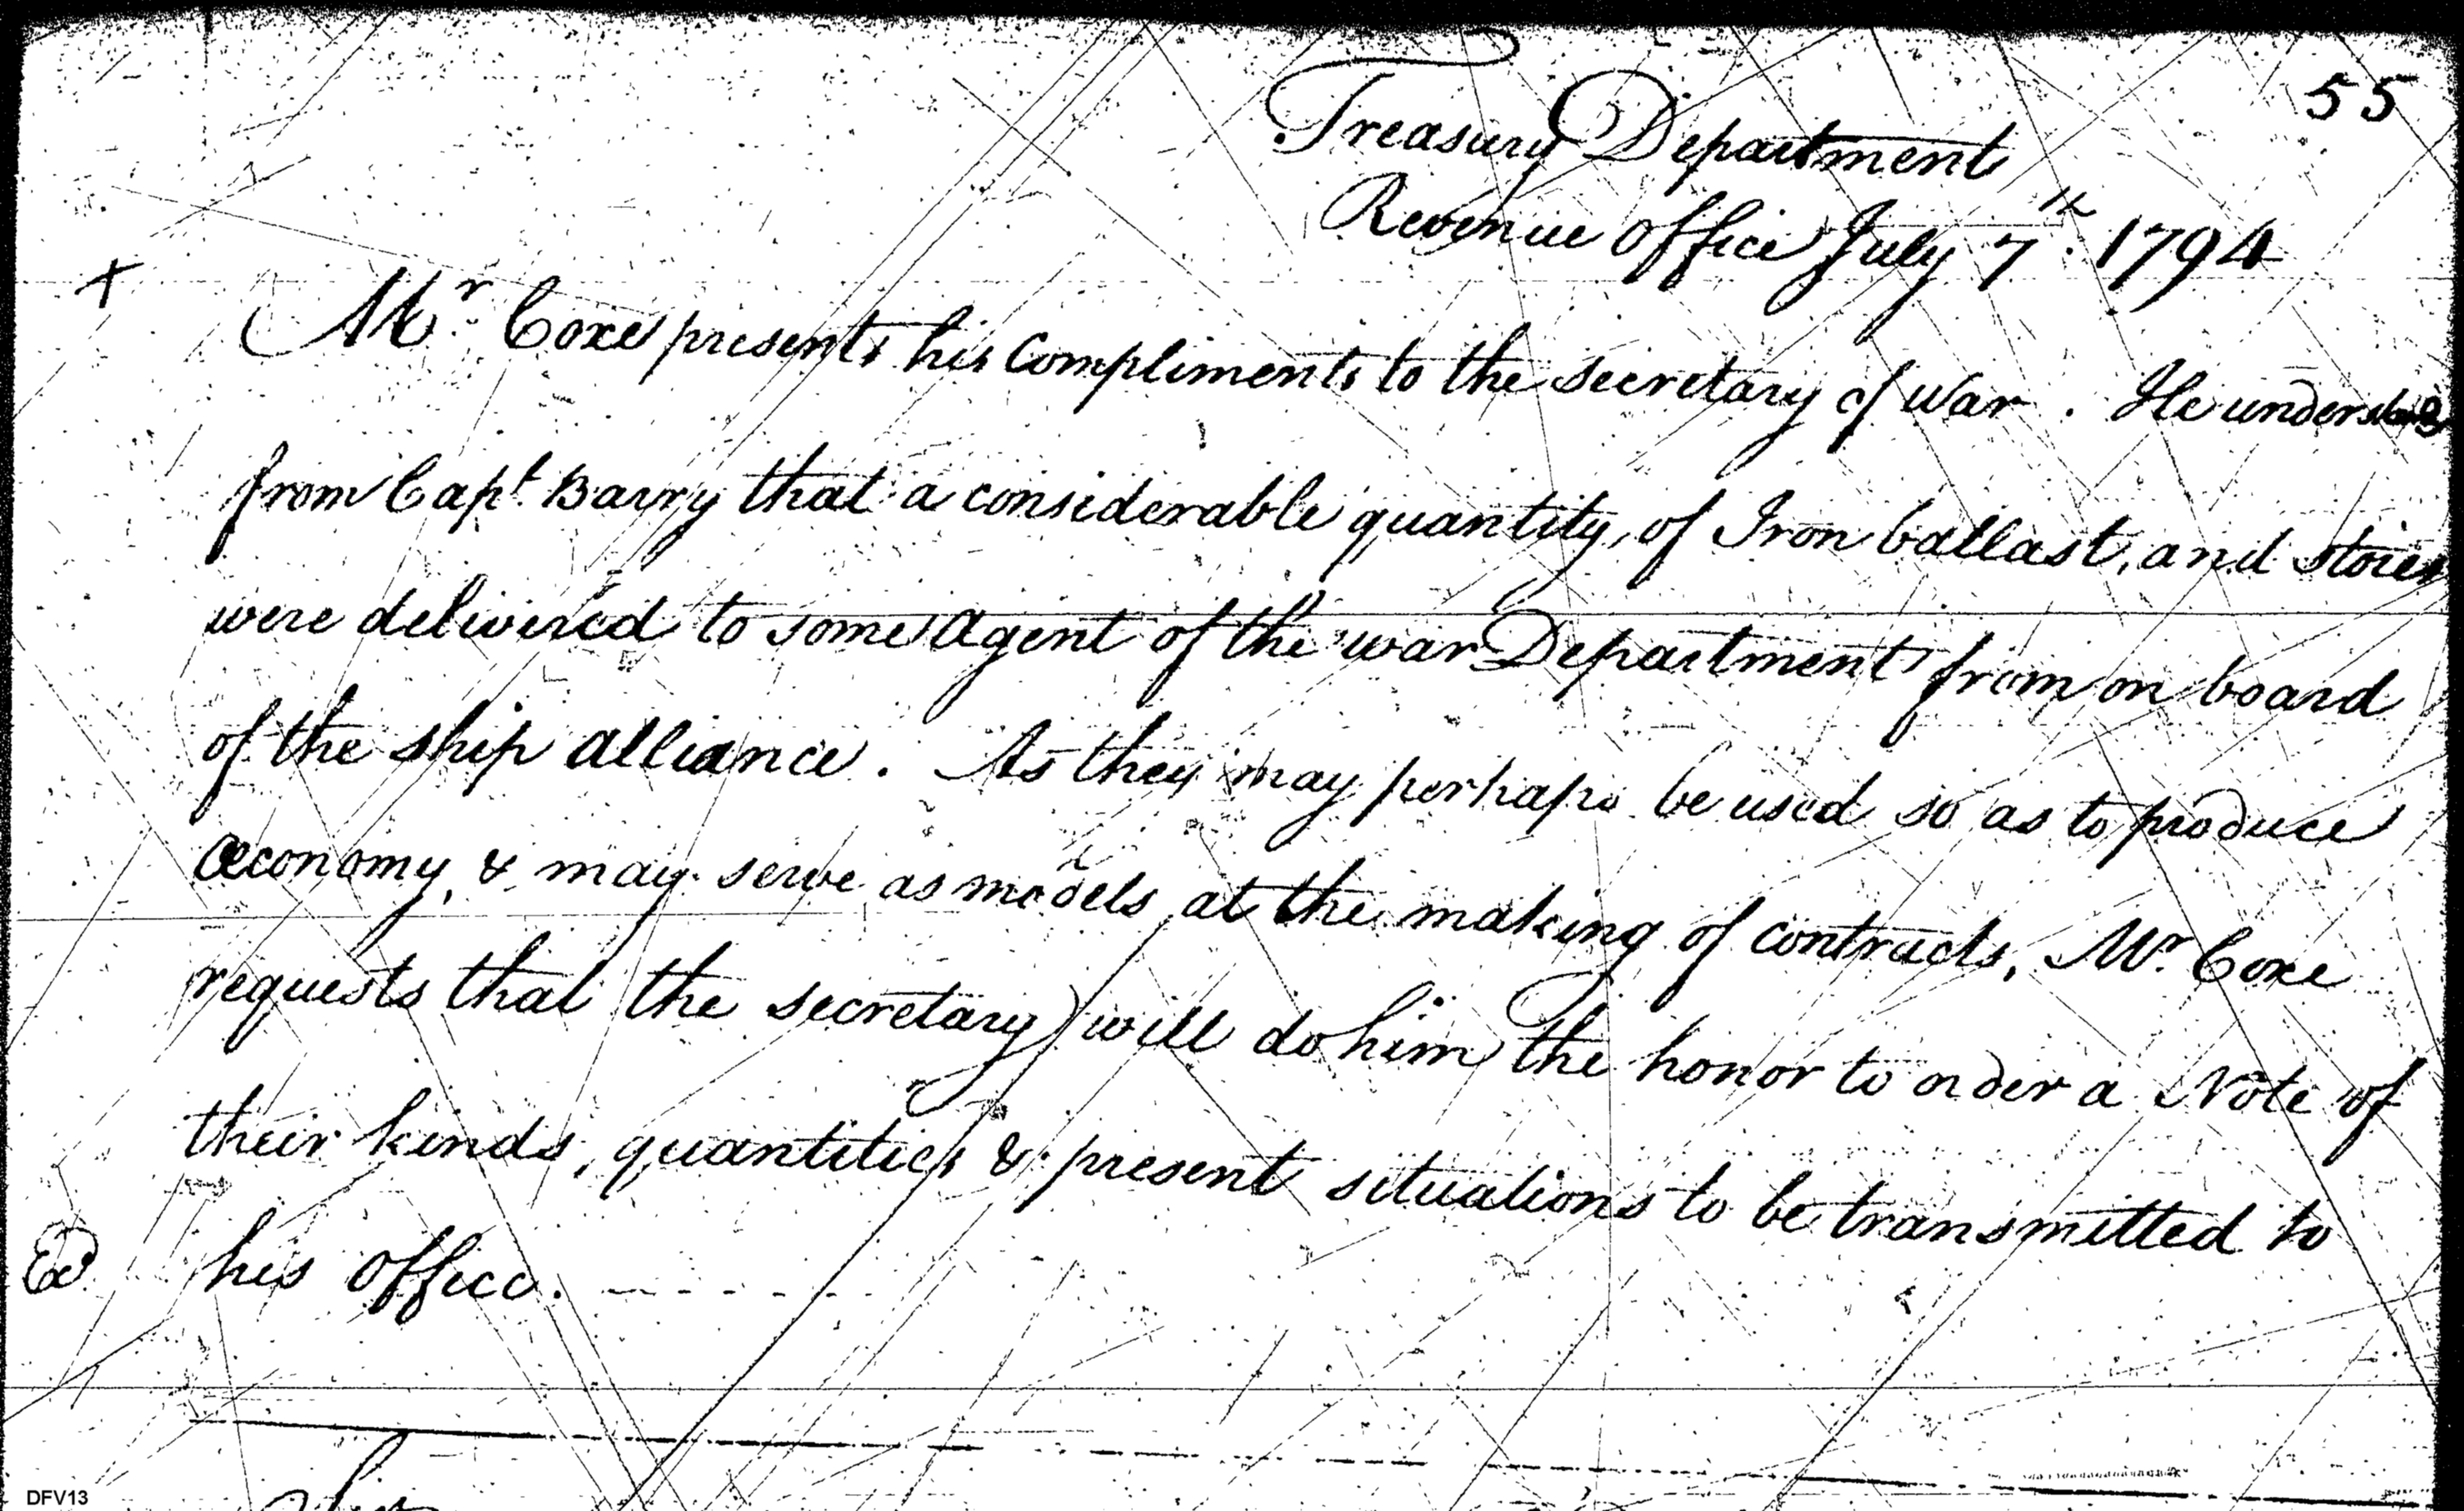 55
Treasury Department
Revenue office July 7th. 1794
+
Mr. Coxe presents his Compliments to the Secretary of War. He understands
from Capt. Barry that a considerable quantity, of Iron ballast, and stores
were delivered to some Agent of the war Department from on board
of the ship Alliance. As they may perhaps be used so as to produce
Œconomy, & may serve as models at the making of contracts, Mr. Coxe
requests that the secretary will do him the honor to order a Note of
their kinds, quantities & present situations to be transmitted to
his Office.
DFV13